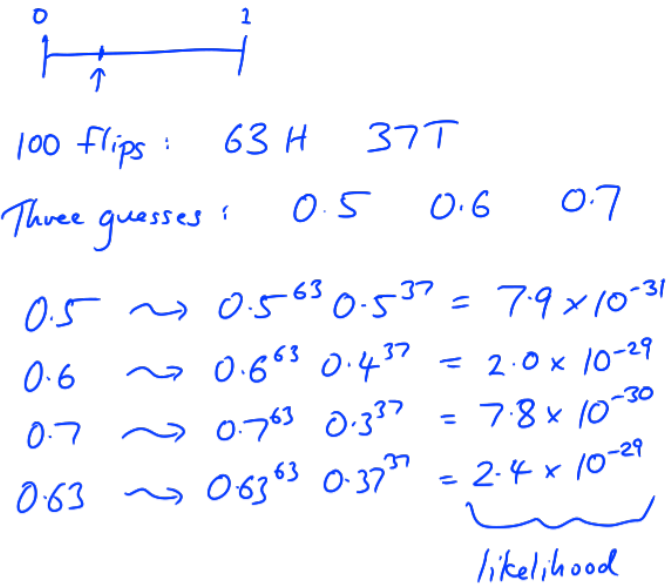 0 1
↑
100 flips : 63 H 37T
Three guesses : 0.5 0.6 0.7
0.5 ⇝ 0.5⁶³ 0.5³⁷ = 7.9 × 10⁻³¹
0.6 ⇝ 0.6⁶³ 0.4³⁷ = 2.0 × 10⁻²⁹
0.7 ⇝ 0.7⁶³ 0.3³⁷ = 7.8 × 10⁻³⁰
0.63 ⇝ 0.63⁶³ 0.37³⁷ = 2.4 × 10⁻²⁹
likelihood